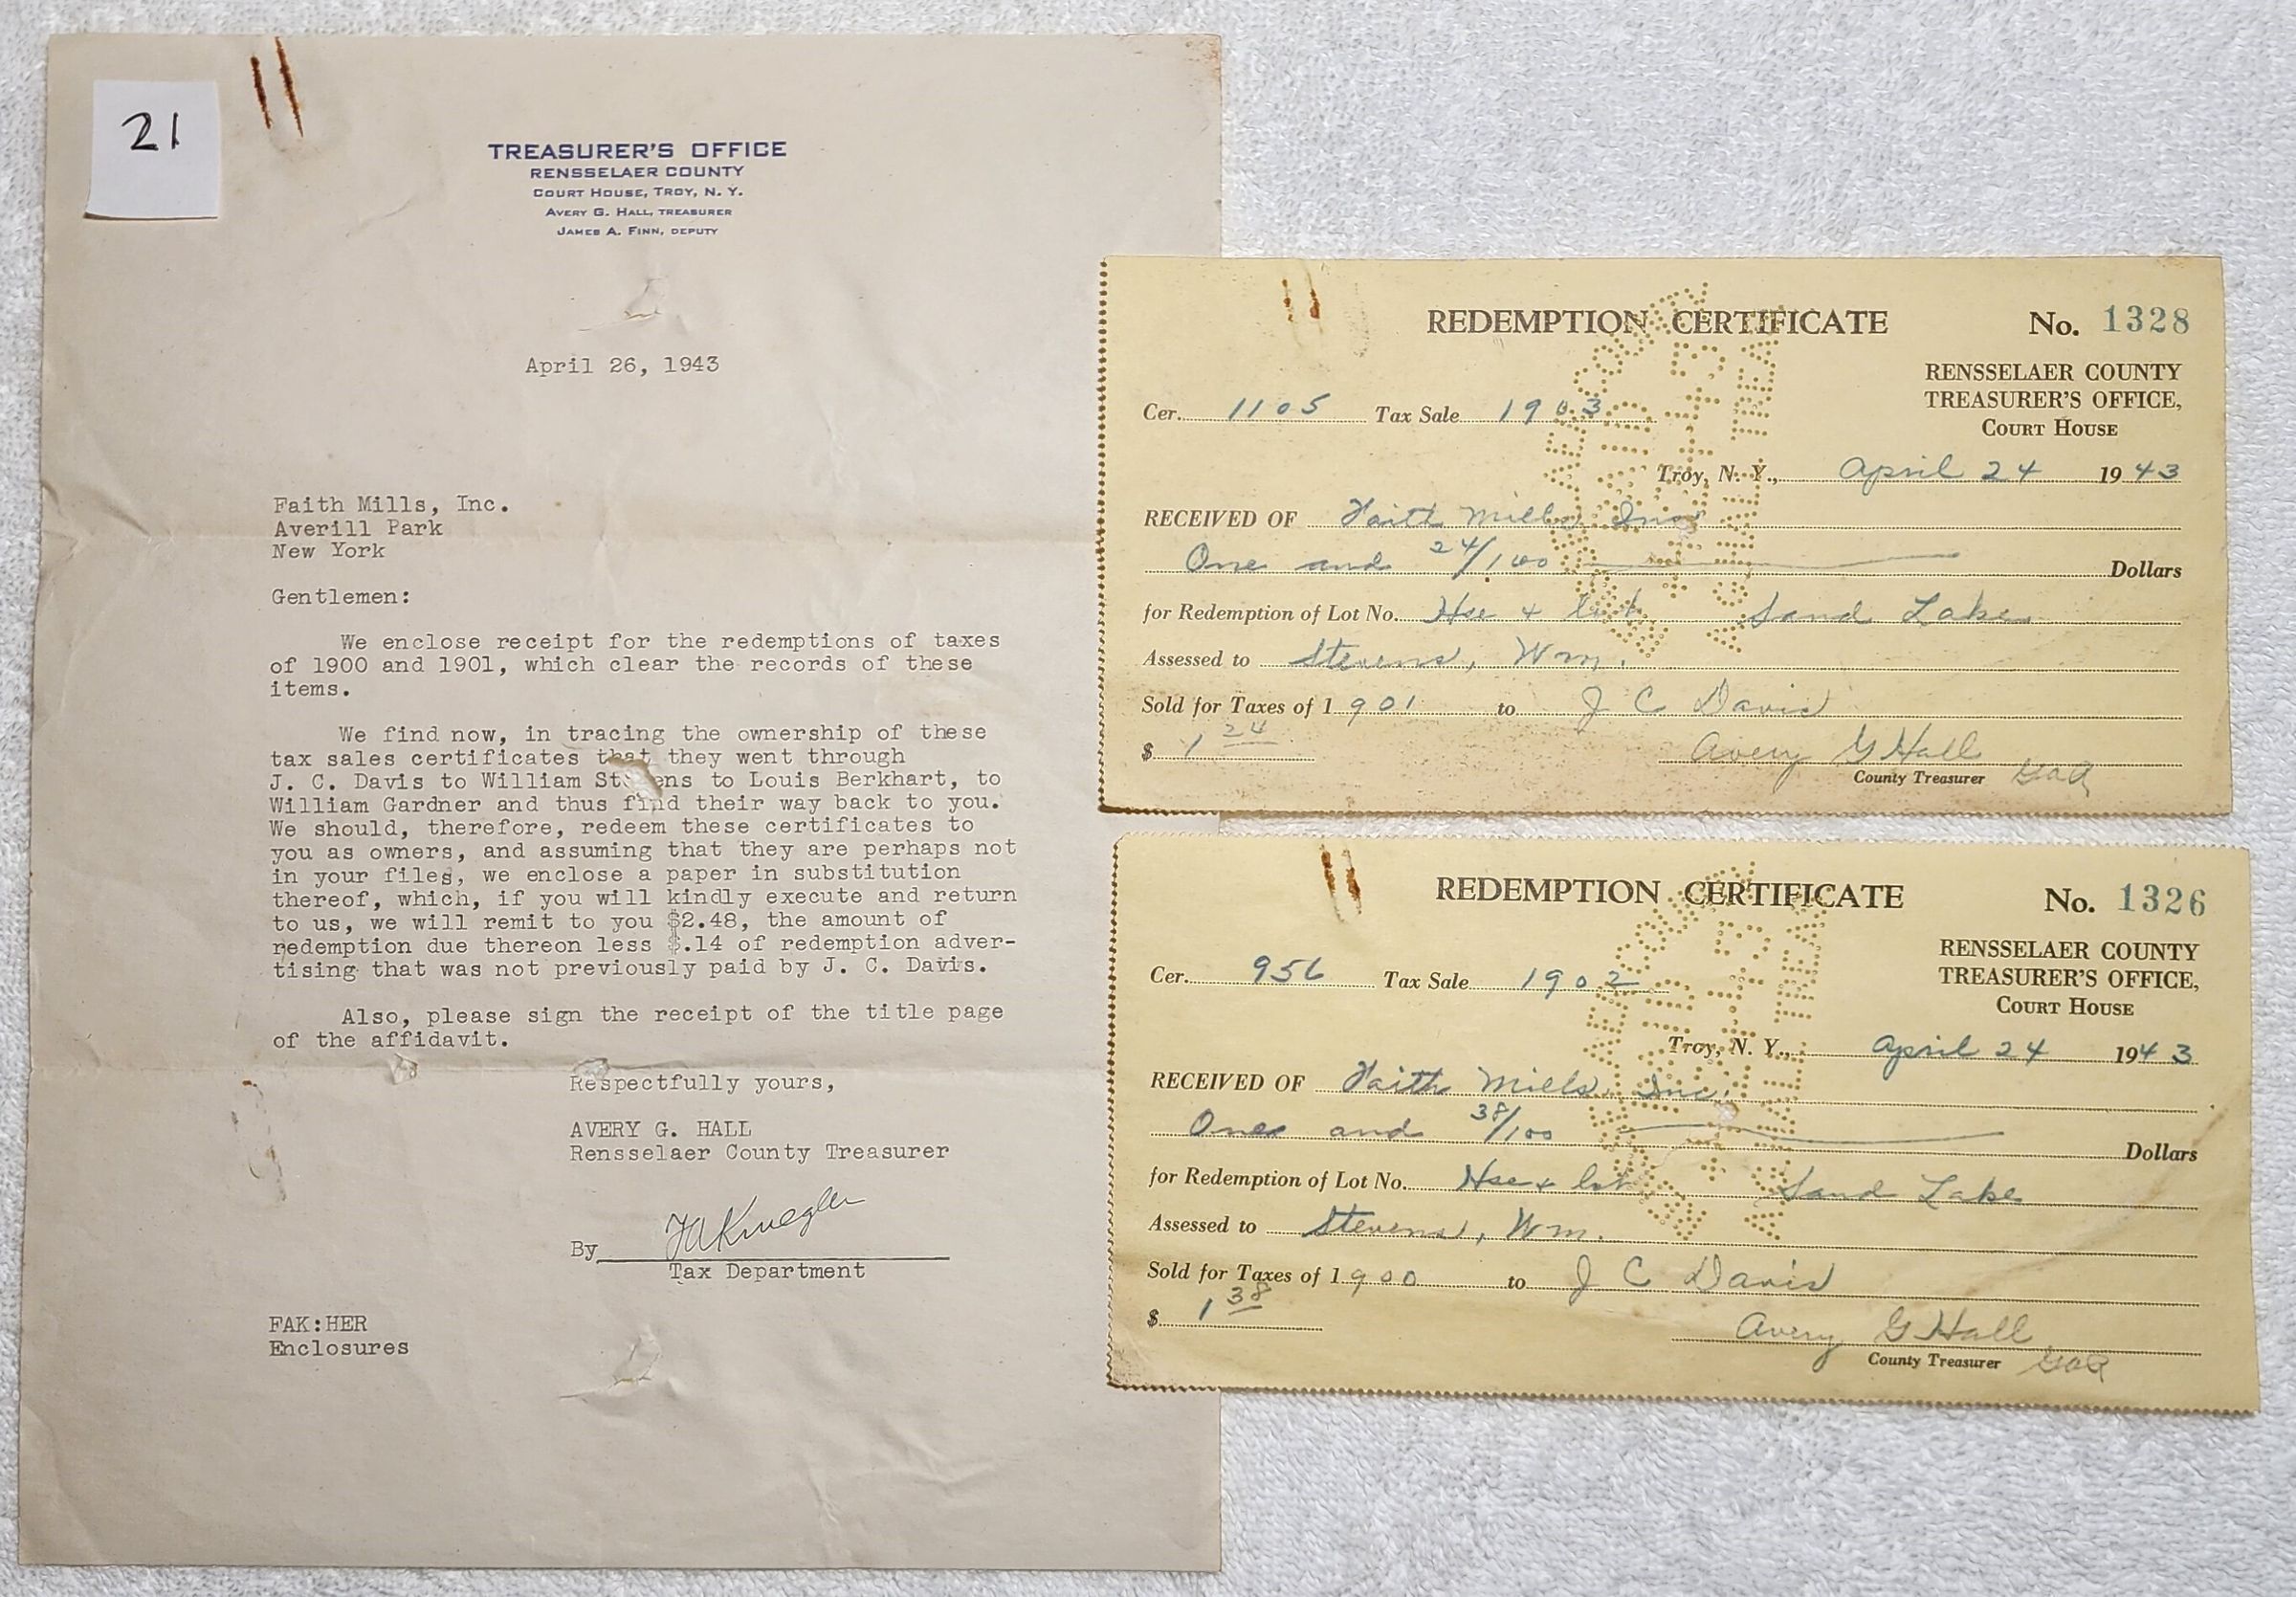 21
TREASURER'S OFFICE
RENSSELAER COUNTY
COURT HOUSE, TROY, N. Y.
AVERY G. HALL, TREASURER
JAMES A. FINN, DEPUTY
April 26, 1943
Faith Mills, Inc.
Averill Park
New York
Gentlemen:
We enclose receipt for the redemptions of taxes
of 1900 and 1901, which clear the records of these
items.
We find now, in tracing the ownership of these
tax sales certificates that they went through
J. C. Davis to William St ens to Louis Berkhart, to
William Gardner and thus find their way back to you.
We should, therefore, redeem these certificates to
you as owners, and assuming that they are perhaps not
in your files, we enclose a paper in substitution
thereof, which, if you will kindly execute and return
to us, we will remit to you $2.48, the amount of
redemption due thereon less $.14 of redemption adver-
tising that was not previously paid by J. C. Davis.
Also, please sign the receipt of the title page
of the affidavit.
Respectfully yours,
AVERY G. HALL
Rensselaer County Treasurer
By FAKruegler
Tax Department
FAK:HER
Enclosures
REDEMPTION CERTIFICATE No. 1328
RENSSELAER COUNTY
TREASURER'S OFFICE,
COURT HOUSE
Cer. 1105 Tax Sale 1903
Troy, N. Y., April 24 1943
RECEIVED OF Faith Mills Inc.
One and 24/100 Dollars
for Redemption of Lot No. Hse + lot Sand Lake
Assessed to Stevens, Wm.
Sold for Taxes of 1901 to J C Davis
$ 1 24
Avery G Hall
County Treasurer
REDEMPTION CERTIFICATE No. 1326
RENSSELAER COUNTY
TREASURER'S OFFICE,
COURT HOUSE
Cer. 956 Tax Sale 1902
Troy, N. Y., April 24 1943
RECEIVED OF Faith Mills, Inc.
One and 38/100 Dollars
for Redemption of Lot No. Hse + lot Sand Lake
Assessed to Stevens, Wm.
Sold for Taxes of 1900 to J C Davis
$ 1 38
Avery G Hall
County Treasurer